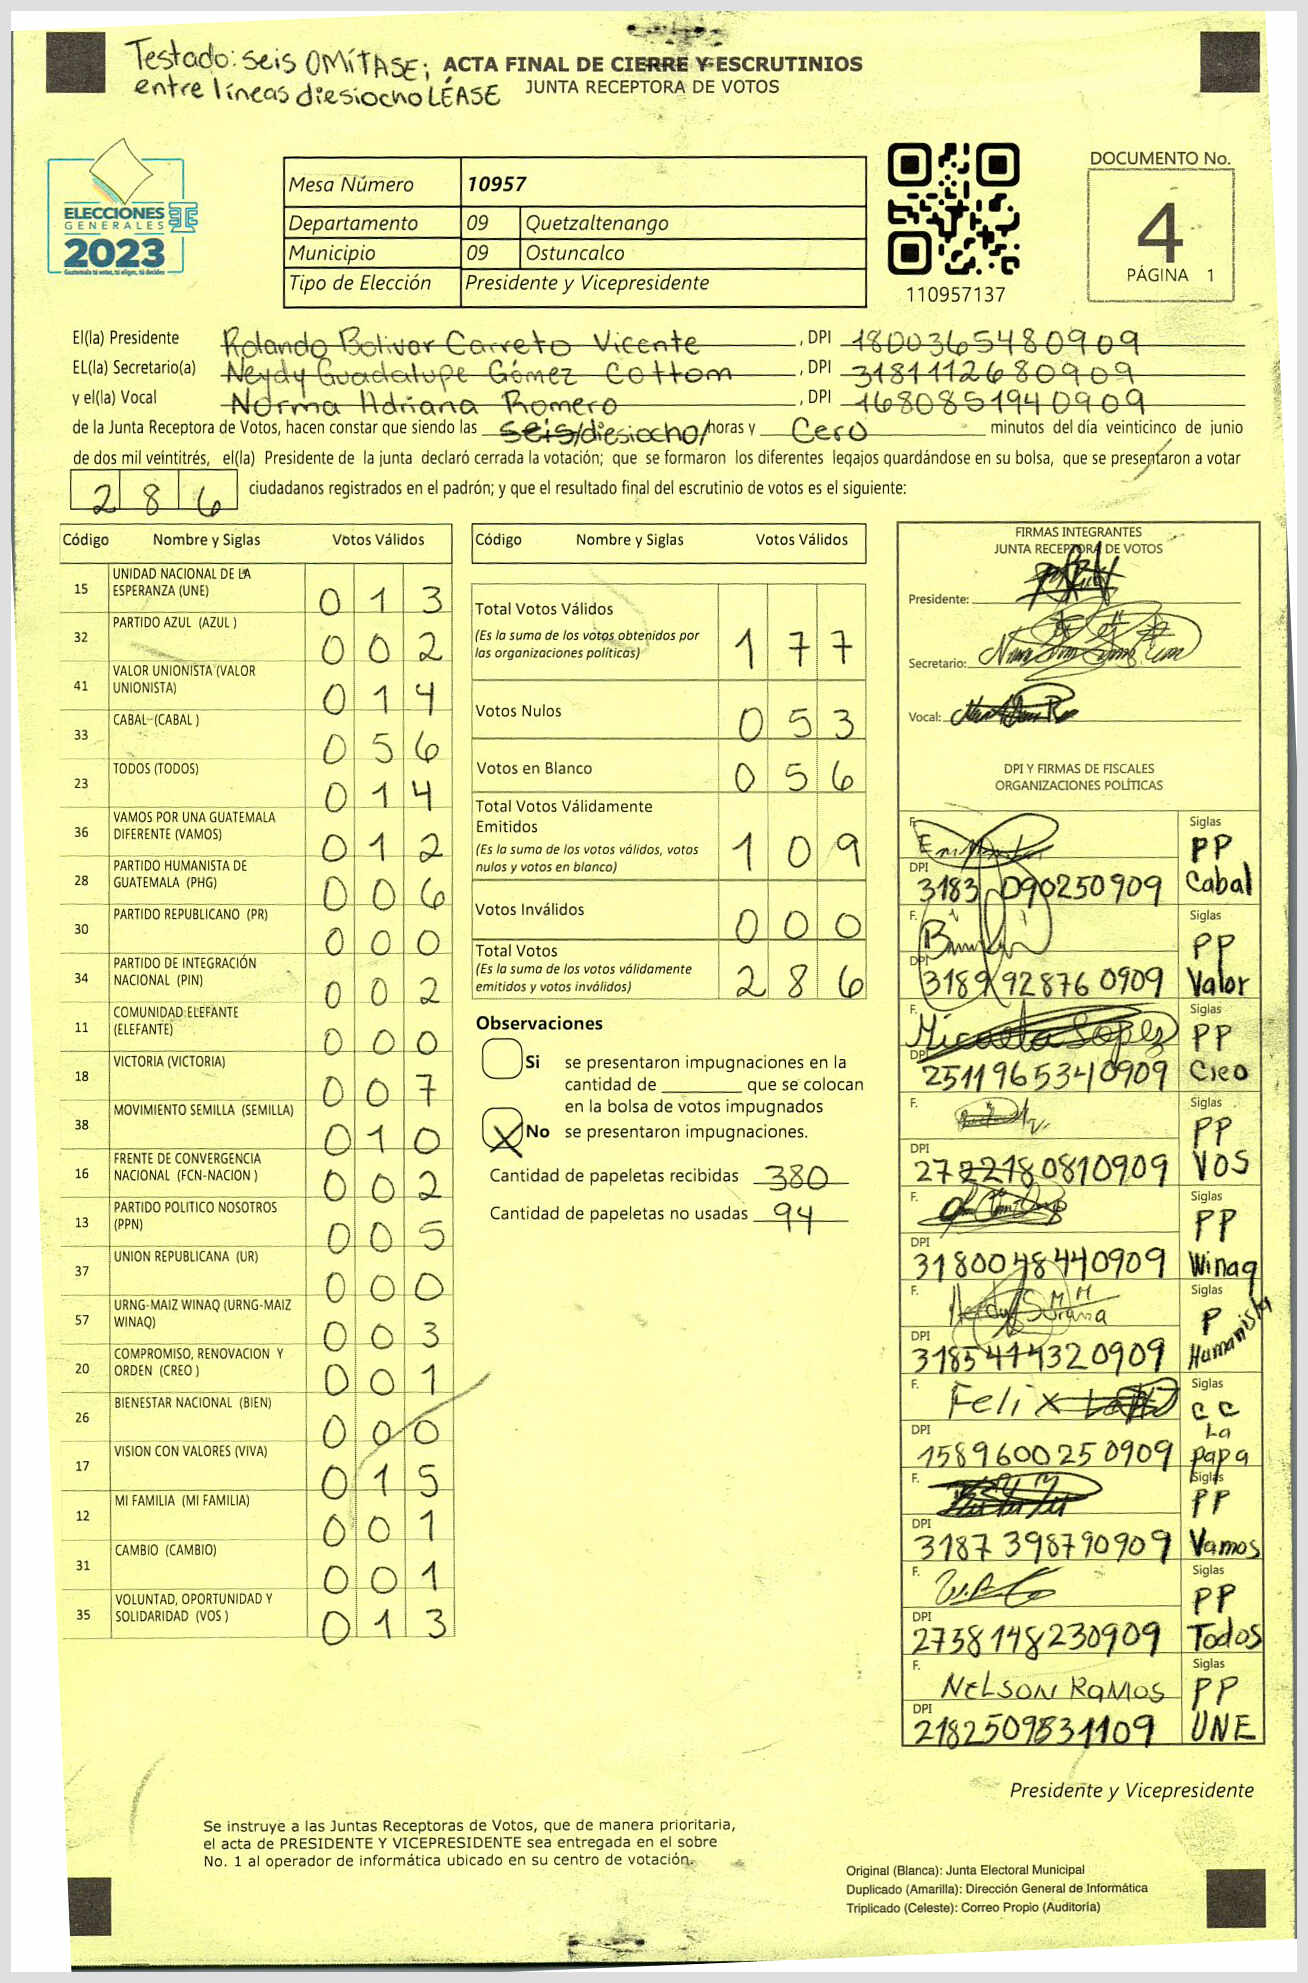 Testado: seis OMÍTASE;
entre líneas diesiocho LÉASE
ACTA FINAL DE CIERRE Y ESCRUTINIOS
JUNTA RECEPTORA DE VOTOS
ELECCIONES
GENERALES
2023
Guatemala tú votas, tú eliges, tú decides
Mesa Número 10957
Departamento 09 Quetzaltenango
Municipio 09 Ostuncalco
Tipo de Elección Presidente y Vicepresidente
110957137
DOCUMENTO No.
4
PÁGINA 1
El(la) Presidente Rolando Bolivar Carreto Vicente, DPI 1800365480909
EL(la) Secretario(a) Neydy Guadalupe Gómez Cottom, DPI 3181112680909
y el(la) Vocal Norma Adriana Romero, DPI 1680851940909
de la Junta Receptora de Votos, hacen constar que siendo las seis/diesiocho/horas y Cero minutos del día veinticinco de junio
de dos mil veintitrés, el(la) Presidente de la junta declaró cerrada la votación; que se formaron los diferentes legajos guardándose en su bolsa, que se presentaron a votar
286 ciudadanos registrados en el padrón; y que el resultado final del escrutinio de votos es el siguiente:
Código Nombre y Siglas Votos Válidos
15 UNIDAD NACIONAL DE LA ESPERANZA (UNE) 013
32 PARTIDO AZUL (AZUL ) 002
41 VALOR UNIONISTA (VALOR UNIONISTA) 014
33 CABAL (CABAL ) 056
23 TODOS (TODOS) 014
36 VAMOS POR UNA GUATEMALA DIFERENTE (VAMOS) 012
28 PARTIDO HUMANISTA DE GUATEMALA (PHG) 006
30 PARTIDO REPUBLICANO (PR) 000
34 PARTIDO DE INTEGRACIÓN NACIONAL (PIN) 002
11 COMUNIDAD ELEFANTE (ELEFANTE) 000
18 VICTORIA (VICTORIA) 007
38 MOVIMIENTO SEMILLA (SEMILLA) 010
16 FRENTE DE CONVERGENCIA NACIONAL (FCN-NACION ) 002
13 PARTIDO POLITICO NOSOTROS (PPN) 005
37 UNION REPUBLICANA (UR) 000
57 URNG-MAIZ WINAQ (URNG-MAIZ WINAQ) 003
20 COMPROMISO, RENOVACION Y ORDEN (CREO ) 001
26 BIENESTAR NACIONAL (BIEN) 000
17 VISION CON VALORES (VIVA) 015
12 MI FAMILIA (MI FAMILIA) 001
31 CAMBIO (CAMBIO) 001
35 VOLUNTAD, OPORTUNIDAD Y SOLIDARIDAD (VOS ) 013
Código Nombre y Siglas Votos Válidos
Total Votos Válidos 177
(Es la suma de los votos obtenidos por
las organizaciones políticas)
Votos Nulos 053
Votos en Blanco 056
Total Votos Válidamente
Emitidos 109
(Es la suma de los votos válidos, votos
nulos y votos en blanco)
Votos Inválidos 000
Total Votos 286
(Es la suma de los votos válidamente
emitidos y votos inválidos)
Observaciones
Si se presentaron impugnaciones en la
cantidad de ________ que se colocan
en la bolsa de votos impugnados
X No se presentaron impugnaciones.
Cantidad de papeletas recibidas 380
Cantidad de papeletas no usadas 94
FIRMAS INTEGRANTES
JUNTA RECEPTORA DE VOTOS
Presidente:
Secretario:
Vocal:
DPI Y FIRMAS DE FISCALES
ORGANIZACIONES POLÍTICAS
F. Siglas PP Cabal
DPI 3183 090250909
F. Siglas PP Valor
DPI 3189 92876 0909
F. Micaela Lopez Siglas PP Creo
DPI 2511965340909
F. Siglas PP VOS
DPI 2722180810909
F. Siglas PP Winaq
DPI 3180048440909
F. Siglas P Humanista
DPI 3185414320909
F. Felix Siglas CC La papa
DPI 1589600250909
F. Siglas PP Vamos
DPI 3187398790909
F. Siglas PP Todos
DPI 2738148230909
F. NELSON RAMOS Siglas PP UNE
DPI 2182509831109
Presidente y Vicepresidente
Se instruye a las Juntas Receptoras de Votos, que de manera prioritaria,
el acta de PRESIDENTE Y VICEPRESIDENTE sea entregada en el sobre
No. 1 al operador de informática ubicado en su centro de votación.
Original (Blanca): Junta Electoral Municipal
Duplicado (Amarilla): Dirección General de Informática
Triplicado (Celeste): Correo Propio (Auditoría)